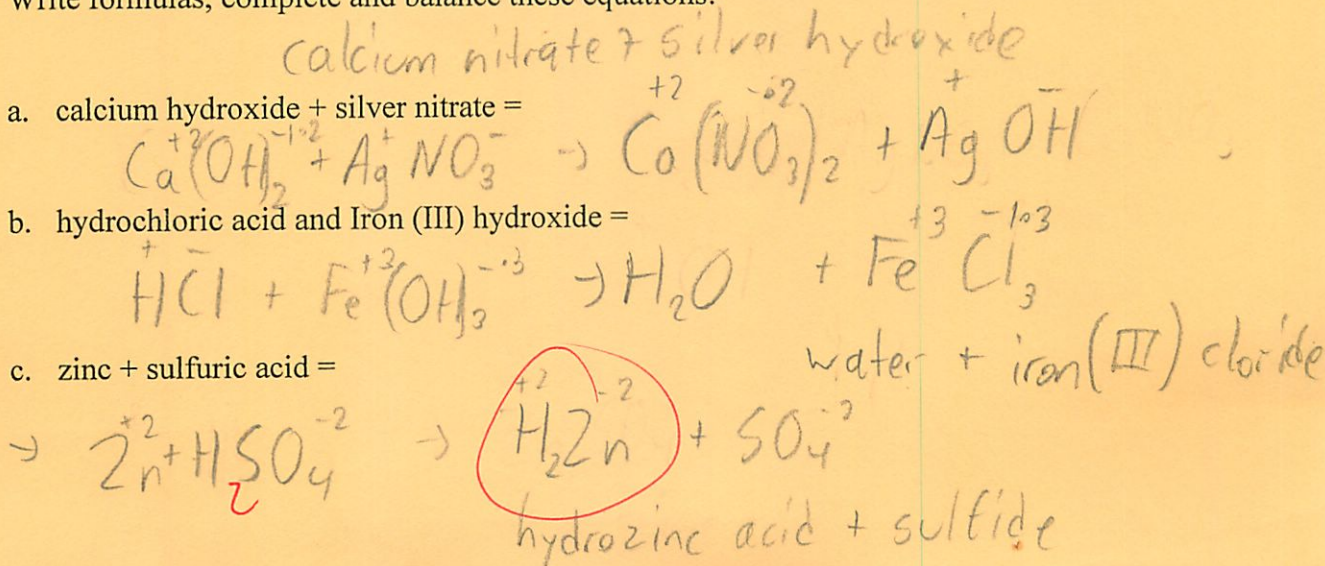 Write formulas, complete and balance these equations.
calcium nitrate + silver hydroxide
a. calcium hydroxide + silver nitrate =
Ca⁺²(OH)₂⁻¹·² + Ag⁺NO₃⁻ → Ca⁺²(NO₃)₂⁻·² + Ag⁺OH⁻
b. hydrochloric acid and Iron (III) hydroxide =
H⁺Cl⁻ + Fe⁺³(OH)₃⁻·³ → H₂O + Fe⁺³Cl₃⁻¹·³
water + iron (III) cloride
c. zinc + sulfuric acid =
→ Zn⁺² + H₂SO₄⁻² → H₂⁺²Zn⁻² + SO₄⁻²
hydrozinc acid + sulfide